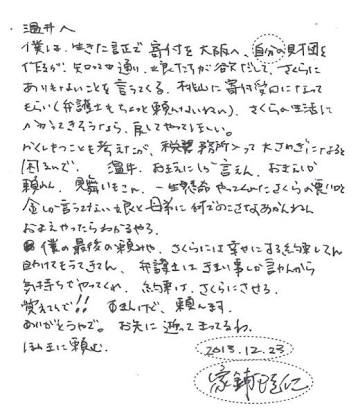 温井へ
僕は、生きた証で寄付を大阪へ、自分の財団を
作るが、知っての通り、娘たちが欲だして、さくらに
ありもないことを言うてくる。村山に寄付窓口になって
もらい(弁護士もちょっと頼りないねん)、さくらの生活に
なってきそうなら、戻してやってほしい。
かくしもつことも考えたが、税務署入って大さわぎになると
困るんで、温井、おまえにしか言えん、おまえしか
頼めん。見舞いもこん、一生懸命やってくれたさくらの悪口と
金しか言うてない娘と兄弟に何でのこさなあかんねん
おまえやったらわかるやろ。
僕の最後の頼みや、さくらには幸せにする約束してん
助けてもろてきてん、弁護士はきまい事しか言わんから
気持ちでやってくれ、約束は、さくらにさせる。
覚えてんで!! すまんけど、頼んます。
ありがとうやで。お先に逝ってまってるわ。
ほんまに頼む。
2013.12.23
家鋪隆仁